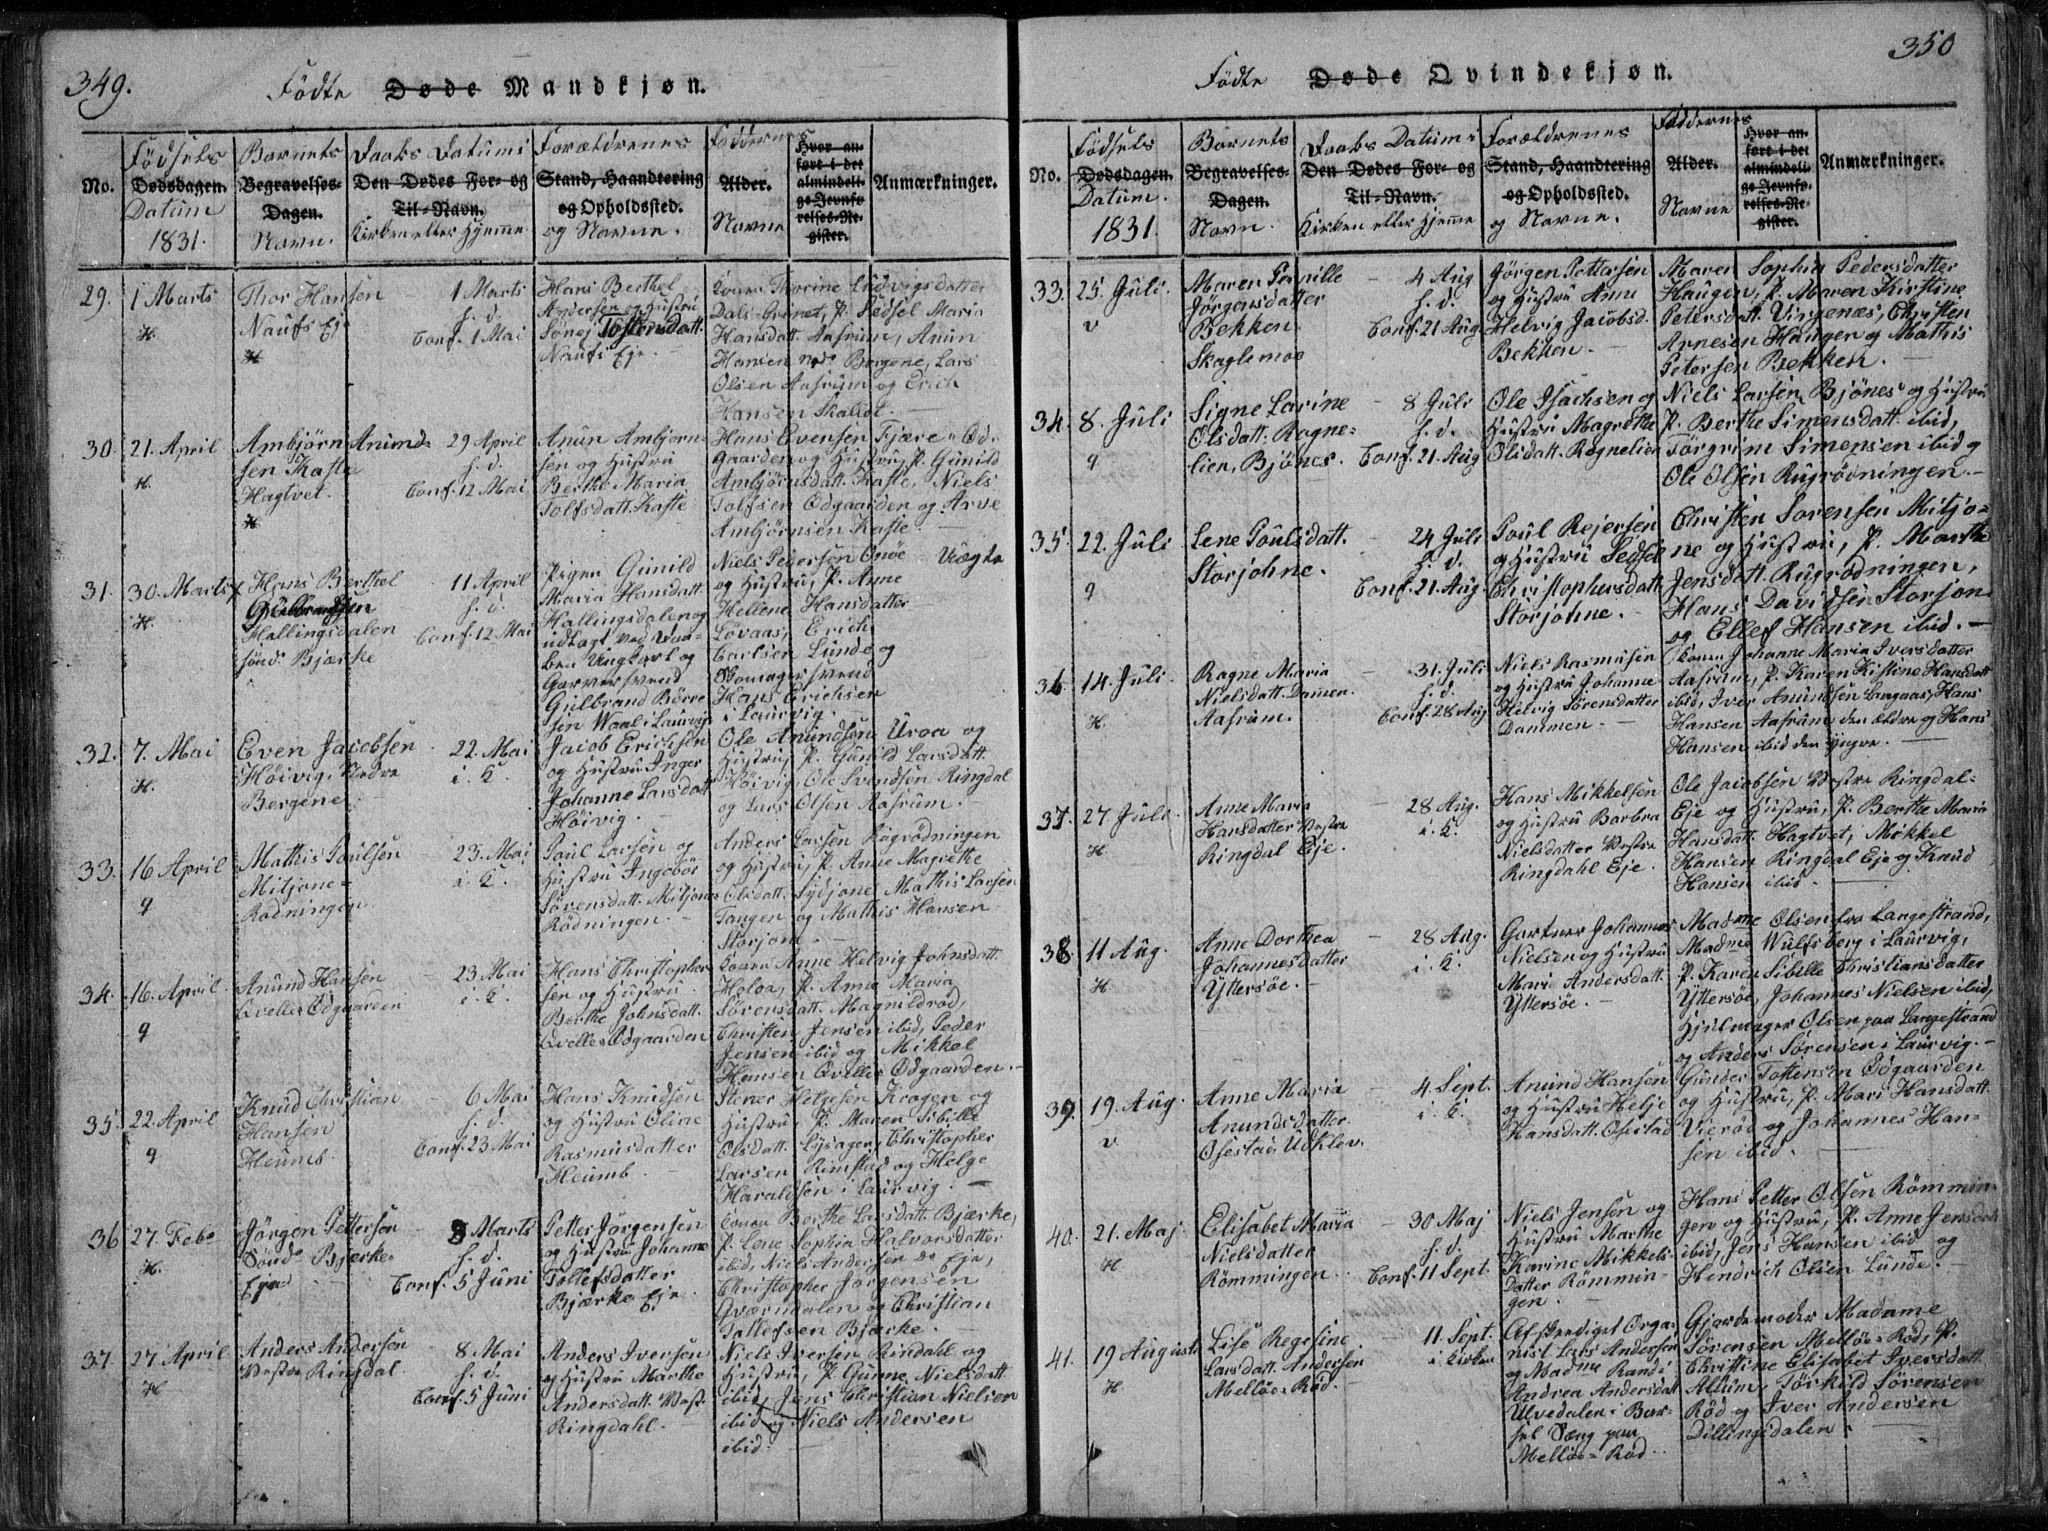 349.
Födte Døde Mandkjøn.
No.
Födsels
Dødsdagen.
Datum
1831.
Barnets
Begravelses-
Dagen.
Navn.
Daabs Datum i
Den Dødes For- og
Til-Navn.
Kirken eller Hjemme
Forældrenes
Stand, Haandtering
og Opholdssted.
og Navne.
Faddernes
Alder.
Navne
Hvor an-
ført i det
almindeli-
ge Jevnfø-
relses-Re-
gister.
Anmærkninger.
29. 1 Marts
H.
Thor Hansen
Naufs Eje
H
1 Marts
h. d.
Conf. 1 Mai
Hans Berthel
Andersen og Hustru
Sönes Tostensdatt.
Naufs Eje.
Konen Thorine Ludvigsdatter
Dals-Grinet, P. Sidsel Maria
Hansdatt. Aasrum, Anun
Hansen nedr Bergene, Lars
Olsen Aasrum og Erich
Hansen Skallist.
30. 21. April
H.
Ambjörn Anund-
sen Kaste
Hagtvet.
H
29 April
h. d.
Conf. 12 Mai
Anun Ambjorn-
sen og Hustru
Berthe Maria
Tolfsdatt. Kaste
Hans Evensen Fjære Od-
gaarden og Hustru, P. Gunild
Ambjörnsdatt. Kaste, Niels
Tolfsen Odgaarden og Arve
Ambjörnsen Kaste.
31. 30. Marts
H.
Hans Berthel
Gulbrandsen
Hallingsdalen
sönd. Bjærke
11 April
h. d.
Conf. 12 Mai
Pigen Gunild
Maria Hansdatt.
Hallingsdalen og
udlagt ved Daa-
ben Ungkarl og
Garversvend
Gulbrand Börre-
sen Waal i Laurvig
Niels Pedersen Onöe
og Hustru, P. Anne
Hellene Hansdatter
Lövaas, Erich
Carlsen Lunde og
Skomagersvend
Hans Erichsen
i Laurvig.
Uægte
32. 7. Mai
H.
Even Jacobsen
Höivig, Nedre
Bergene.
22. Mai
i. K.
Jacob Erichsen
og Hustru Inger
Johanne Larsdatt
Höivig.
Ole Anundsen Uroa og
Hustru, P. Gunild Larsdatt.
Höivig, Ole Svendsen Ringdal
og Lars Olsen Aasrum.
33. 16 April
q
Mathis Poulsen
Mitjone-
Rödningen
23. Mai
i. K.
Poul Larsen og
Hustru Ingebör
Sörensdatt. Mitjone
Rödningen.
Anders Larsen Rögrödningen
og Hustru, P. Anne Magrethe
Olsdatt. Sydjone, Mathis Larsen
Tangen og Mathis Hansen
Storjone.
34. 16. April
q
Anund Hansen
Qvelles Odgaarden
23. Mai
i. K.
Hans Christopher-
sen og Hustru
Berthe Johnsdatt.
Qvelles Odgaarden
Konen Anne Helvig Johnsdatt.
Holoa, P. Anne Maria
Sörensdatt. Magnildröd,
Christen Jensen ibid, Peder
Jensen ibid og Mikkel
Hansen Qvelles Odgaarden.
35. 22. April
q
Knud Christian
Hansen
Heumb.
6 Mai
h. d.
Conf. 23 Mai
Hans Knudsen
og Hustru Oline
Rasmusdatter
Heumb.
Stener Helgesen Kragen og
Hustru, P. Maren Sibille
Olsdatt. Lysagen, Christopher
Larsen Rimstad og Helge
Haraldsen i Laurvig.
36 27. Febr
H.
Jörgen Pettersen
Sönd. Bjærke-
Eje
3 Marts
h. d.
Conf. 5 Juni
Petter Jörgensen
og Hustru Johanne
Tollefsdatter
Bjærke Eje.
Konen Berthe Larsdatt. Bjærke,
P. Lene Sophia Halvorsdatter
ibid, Niels Andersen do Eje,
Christopher Jörgensen
Qværndalen og Christian
Tollefsen Bjærke.
37. 27 April
H
Anders Andersen
Vestre Ringdal.
8 Mai
h. d.
Conf. 5 Juni
Anders Iversen
og Hustru Marthe
Andersdatt. Vest-
Ringdahl.
Niels Iversen Rindahl og
Hustru, P. Gunne Nielsdatt.
ibid, Jens Christian Nielsen
ibid og Niels Andersen
ibid.
350
Födte Døde Qvindekjøn.
No.
Födsels
Dødsdagen.
Datum.
1831.
Barnets
Begravelses-
Dagen.
Navn.
Daabs Datum i
Den Dødes For- og
Til-Navn.
Kirken eller Hjemme
Forældrenes
Stand, Haandtering
og Opholdssted.
og Navne.
Faddernes
Alder.
Navne
Hvor an-
ført i det
almindeli-
ge Jevnfø-
relses-Re-
gister.
Anmærkninger.
33. 25. Juli.
v
Maren Pernille
Jörgensdatter
Bekken
Skaglemoe
4 Aug
h. d.
Conf. 21 Aug
Jörgen Pettersen
og Hustru Anne
Helvig Jacobsd.
Bekken.
Maren Sophia Pedersdatter
Haugen, P. Maren Kirstine
Petersdatt. Virgenæs, Christen
Arnesen Haugen og Mathis
Petersen Bekken.
34. 8. Juli
q
Signe Larine
Olsdatt. Ragne-
lien, Bjönes.
8 Juli
h. d.
Conf. 21 Aug
Ole Isachsen og
Hustru Magrethe
Olsdatt. Ragnelien
Niels Larsen Bjönes og Hustru
P. Berthe Simensdatt. ibid,
Törgrim Simensen ibid og
Ole Olsen Rugrödningen.
35. 22. Juli
q
Lene Poulsdatt.
Storjohne.
24 Juli
h. d.
Conf. 21 Aug.
Poul Rejersen
og Hustru Sidsel
Christophersdatt
Storjohne.
Christen Sorensen Mitjo-
ne og Hustru, P. Marthe
Jensdatt. Rugrodningen,
Hans Davidsen Storjone
og Ellef Hansen ibid.
36. 14. Juli.
H.
Ragne Maria
Nielsdatt. Damen
Aasrum.
31. Juli
h. d.
Conf. 28 Aug
Niels Rasmusen
og Hustru Johanne
Helvig Sörensdatter
Dammen.
Konen Johanne Maria Iversdatter
Aasrum, P. Karen Kistine Hansdatt
ibid, Iver Anundsen Langaas, Hans
Hansen Aasrum den ældre og Hans
Hansen ibid den yngre.
37. 27 Juli.
H.
Anne Maria
Hansdatter Vestre
Ringdal Eje.
28 Aug.
i. K.
Hans Mikkelsen
og Hustru Barbra
Nielsdatter Vestre
Ringdahl Eje.
Ole Jacobsen Vestre Ringdal-
Eje og Hustru, P. Berthe Maria
Hansdatt. Hagtvet, Mikkel
Hansen Ringdal Eje og Knud
Hansen ibid.
38. 11 Aug.
H
Anne Dorthea
Johannesdatter
Yttersöe.
28 Aug.
i. K.
Gartner Johannes
Nielsen og Hustru
Mari Andersdatt.
Yttersöe.
Madme Olsen fra Langestrand,
Madme Wulfsberg i Laurvig,
P. Karen Sibille Christiansdatter
Yttersöe, Johannes Nielsen ibid,
Hjulmager Olsen paa Langestrand
og Anders Sörensen i Laurvig.
39. 19. Aug.
v.
Anne Maria
Anundsdatter
Osestad Udklev.
4. Sept.
i. K.
Anund Hansen
og Hustru Helje
Hansdatt. Osestad
Gunder Tostensen Odgaarden
og Hustru, P. Mari Hansdatt.
Vieröd og Johannes Han-
sen ibid.
40. 21. Maj.
H
Elisabet Maria
Nielsdatter
Römmingen.
30 Maj
h. d.
Conf. 11 Sept.
Niels Jensen og
Hustru Marthe
Karine Mikkels-
Datter Römmin-
gen.
Hans Petter Olsen Römmin-
gen og Hustru, P. Anne Jensdatt
ibid, Jens Hansen ibid og
Hendrich Olsen Lunde.
41. 19 August.
H
Lise Regesine
Larsdatt. Andersen
Melløe-Röd.
11 Sept.
i Kirken
Afskediget Orga-
nist Lars Andersen
og Madme Randi
Andrea Andersdatt
Ulvedalen i Bar-
sel Sæng paa
Melløe-Röd.
Gjordemoder Madame
Sörensen Melløe-Röd, P.
Christine Elisabet Iversdatt.
Allum, Törkild Sörensen
Röd og Iver Andersen
Dillingsdalen.